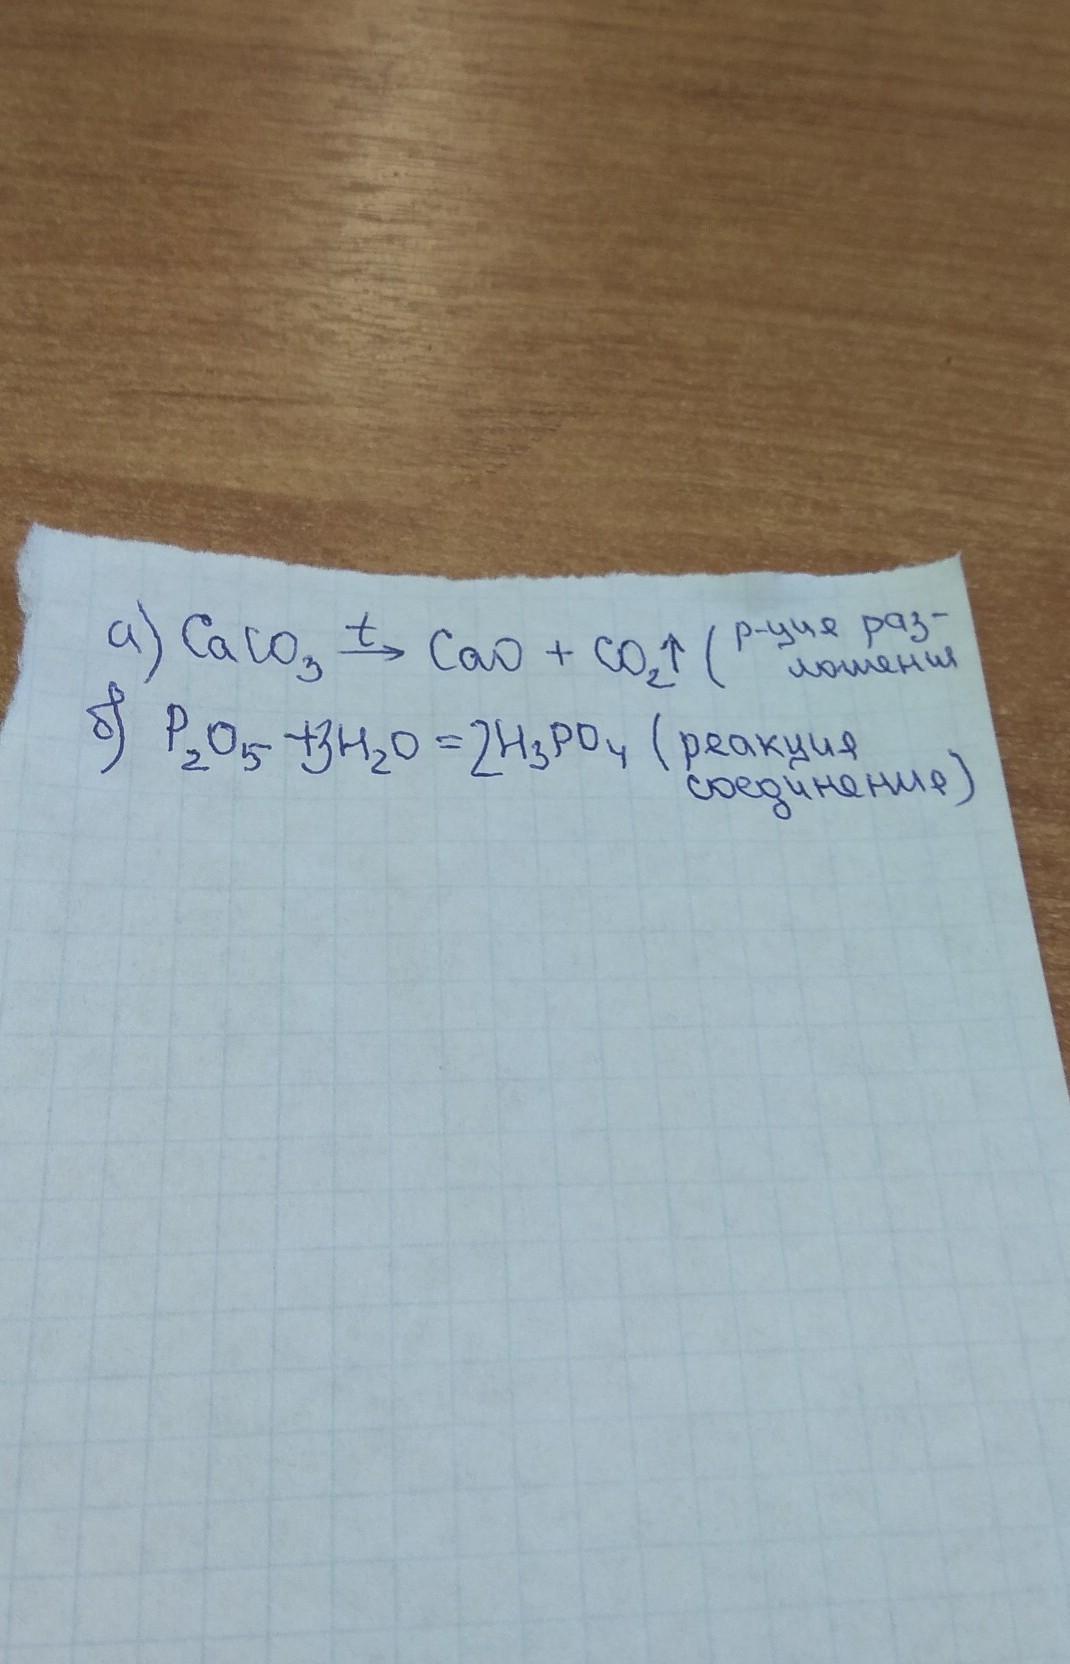 а) CaCO₃ t→ CaO + CO₂↑ (р-ция раз-
ложения
б) P₂O₅ + 3H₂O = 2H₃PO₄ (реакция
соединение)